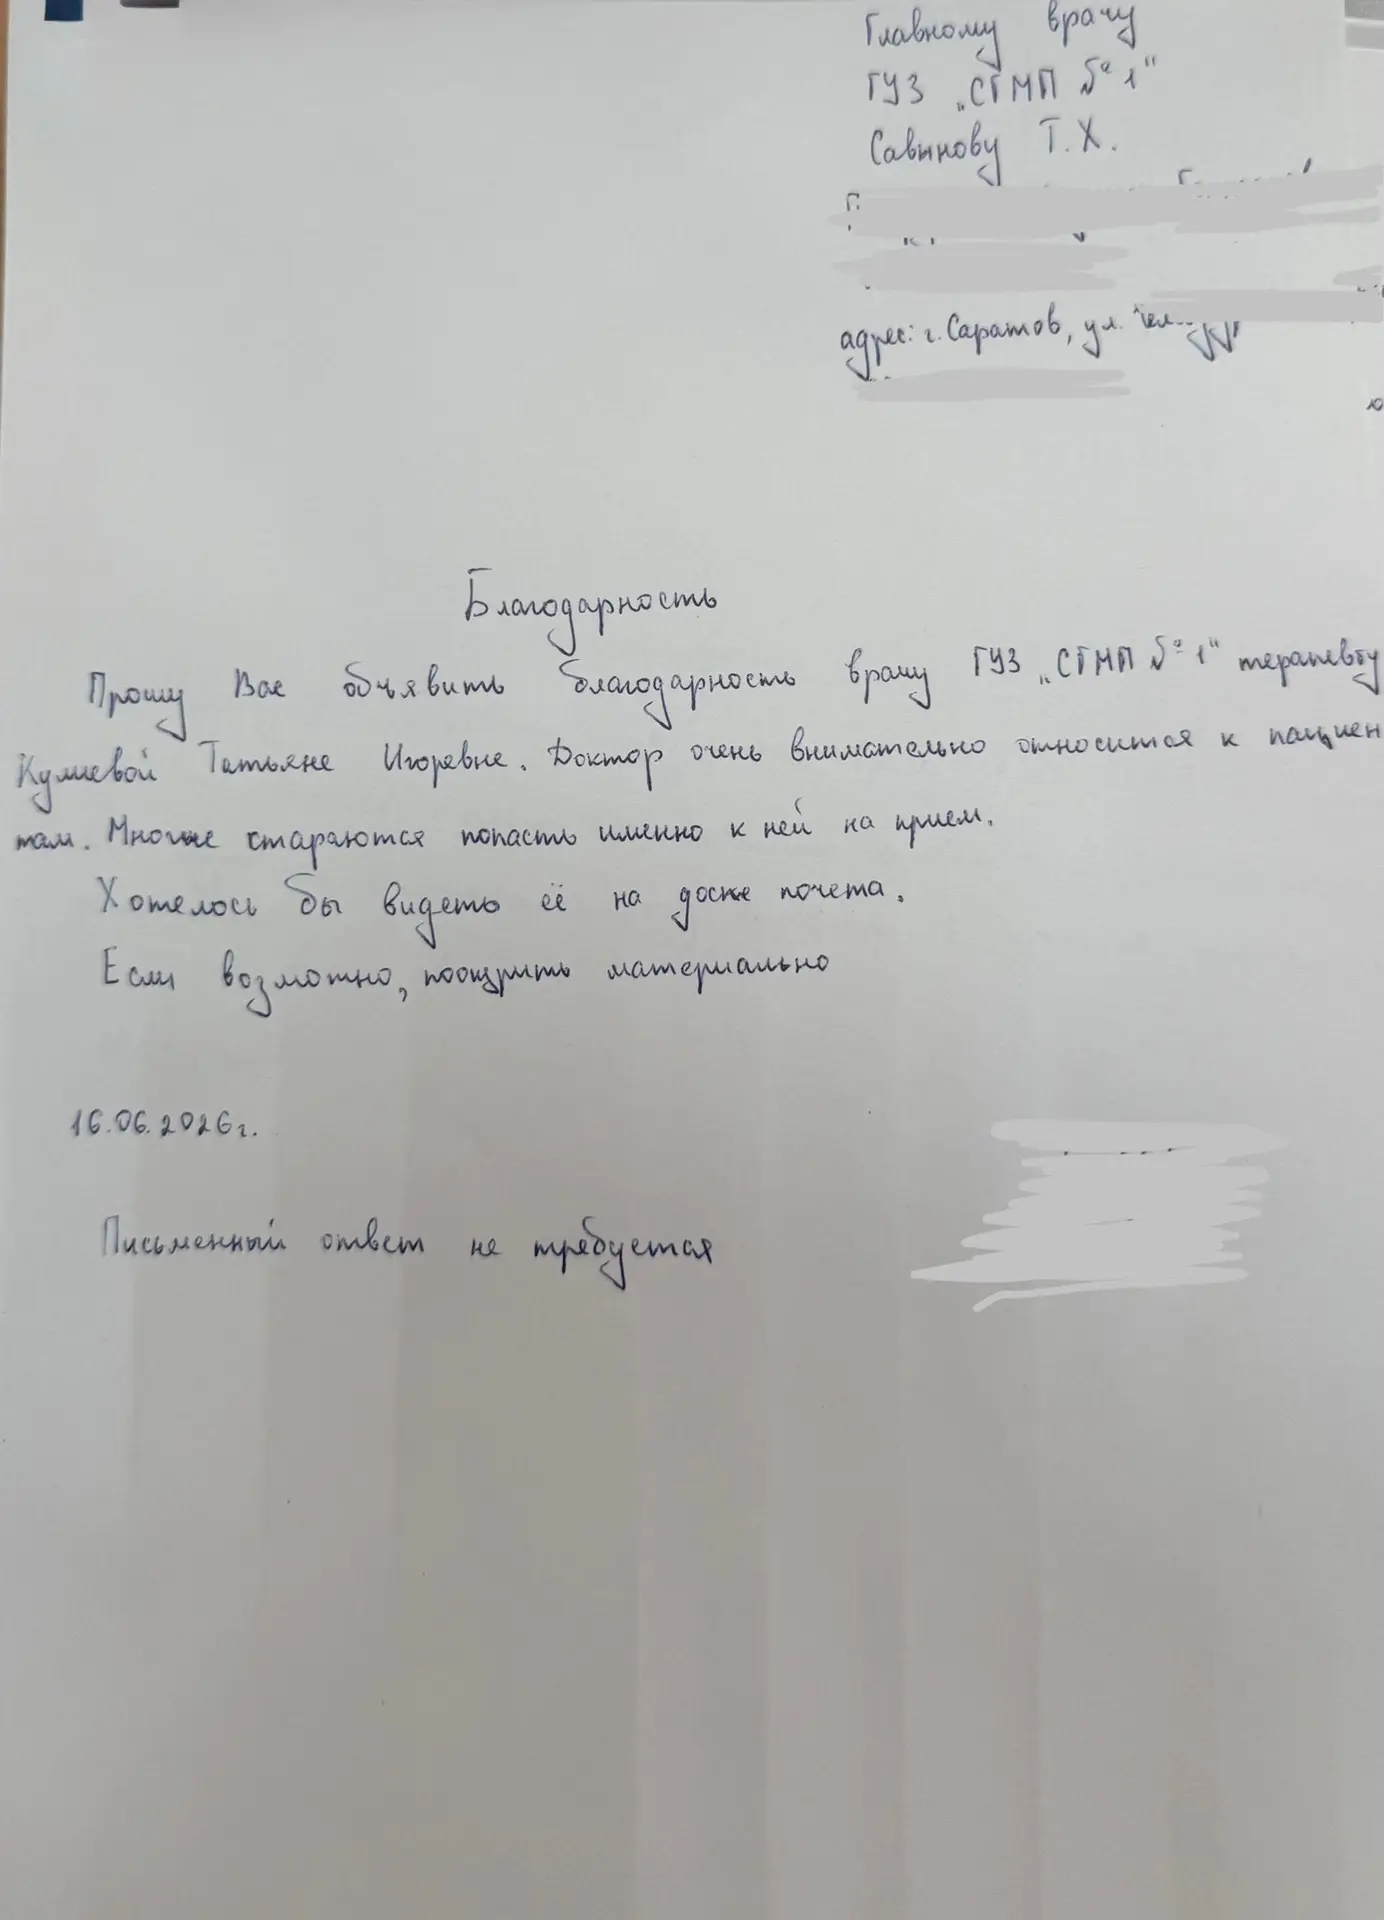 Главному врачу
ГУЗ „СГМП №1"
Савынову Т.Х.
адрес: г. Саратов, ул.
Благодарность
Прошу Вас объявить благодарность врачу ГУЗ „СГМП №1" терапевту
Кулиевой Татьяне Игоревне. Доктор очень внимательно относится к пациен
там. Многие стараются попасть именно к ней на прием.
Хотелось бы видеть её на доске почета.
Если возможно, поощрить материально
16.06.2026г.
Письменный ответ не требуется